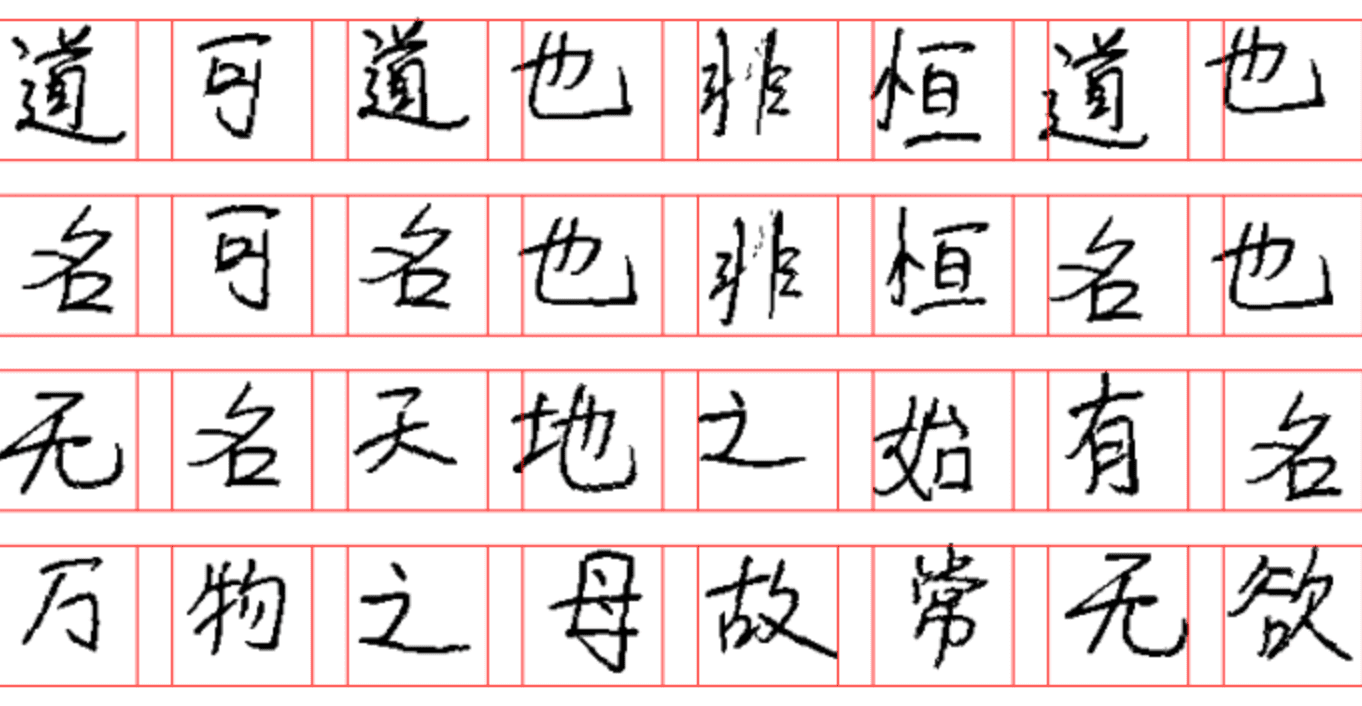 道可道也非恒道也
名可名也非恒名也
无名天地之始有名
万物之母故常无欲